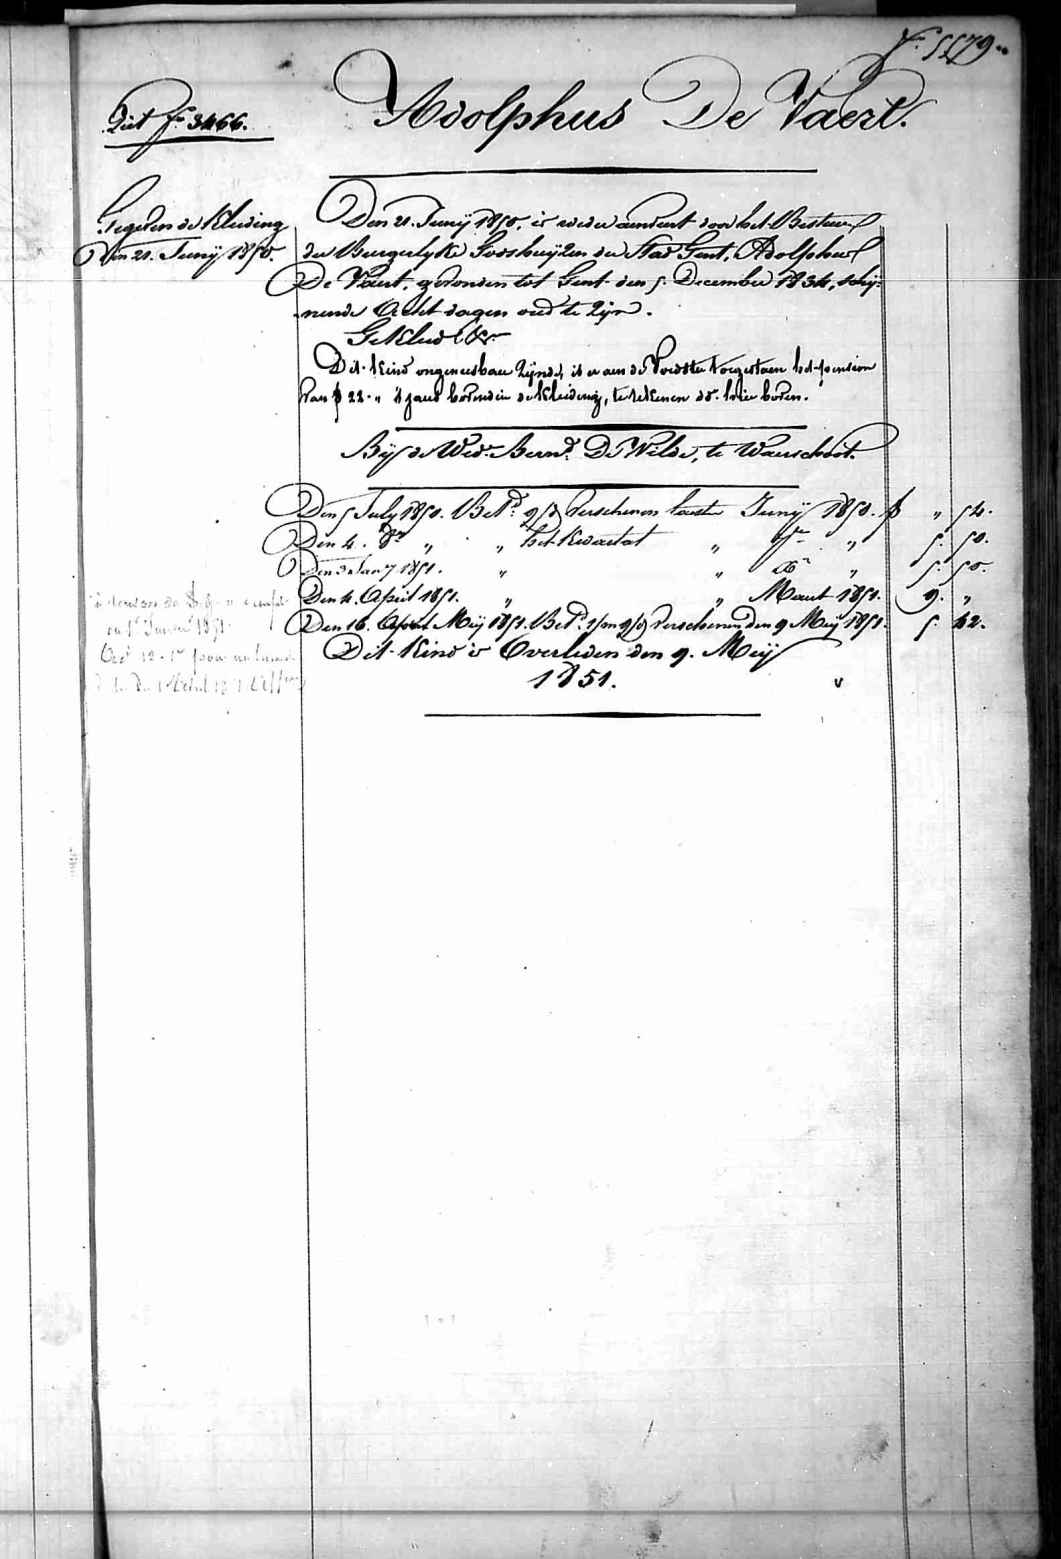 Fo. 5579..
Uit fo. 3466.
Adolphus De Vaert.
Gegeven de Kleeding
Den 21. Junij 1850.
Den 21. Junij 1850, is weder aenveert door het Bestuer
der Burgerlyke Godshuijzen der Stad Gent, Adolphus
De Vaert, gevonden tot Gent den 5. December 1834, schij-
nende Acht dagen oud te Zijn.
Gekleed &a.
Dit Kind ongeneesbaer Zijnde, is er aen de Voedster toegestaen het pension
van f 22. „ 's jaers bovendien de kleeding, te rekenen
Bij de Wede. Bernd. De Wilde, te Waerschoot.
Den 5 July 1850. Betd. 9/d Verschenen laesten Junij 1850. f „ 54.
Den 4. 8br „ „ het Kwartal „ 7br „ 5. 50.
Den 3. Jany 1851. „ „ Xbr „ 5. 50.
Den 4. April 1851. „ „ Maert 1851. 9. „
Den 16. Meij 1851. Betd. 1/m 9/d Verschenen den 9 Meij 1851. 5. 42.
Dit Kind is Overleden den 9. Meij
1851.